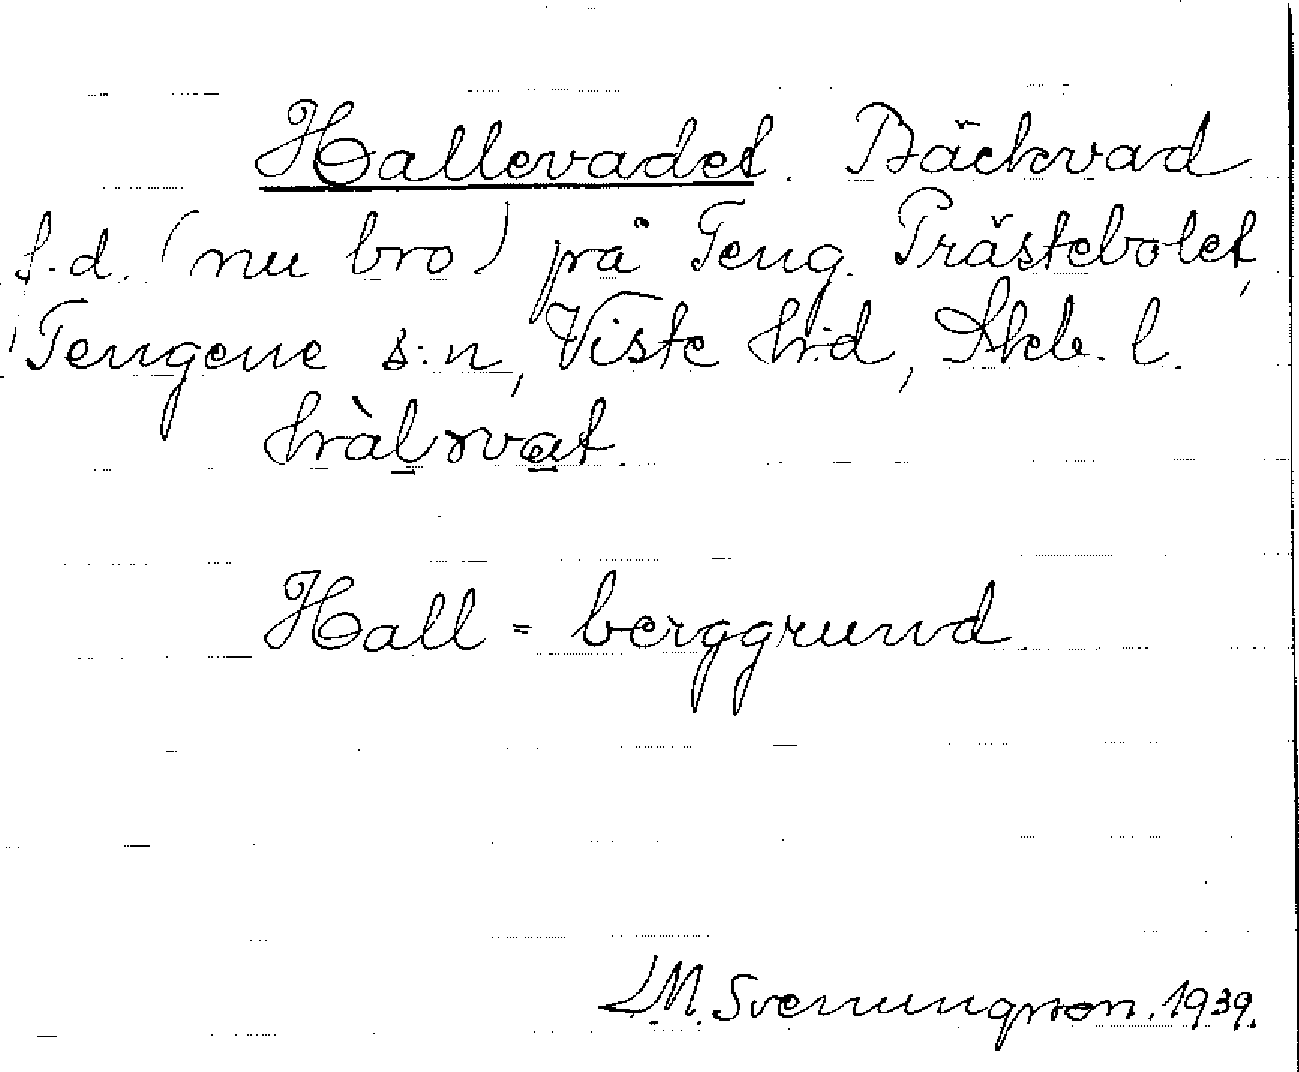 Hallevadet. Bäckvad
f.d. (nu bro) på Teng. Prästebolet,
Tengene s:n, Viste h:d, Skb. l.
hàlɤvat.
Hall = berggrund
L.M. Svenungson. 1939.